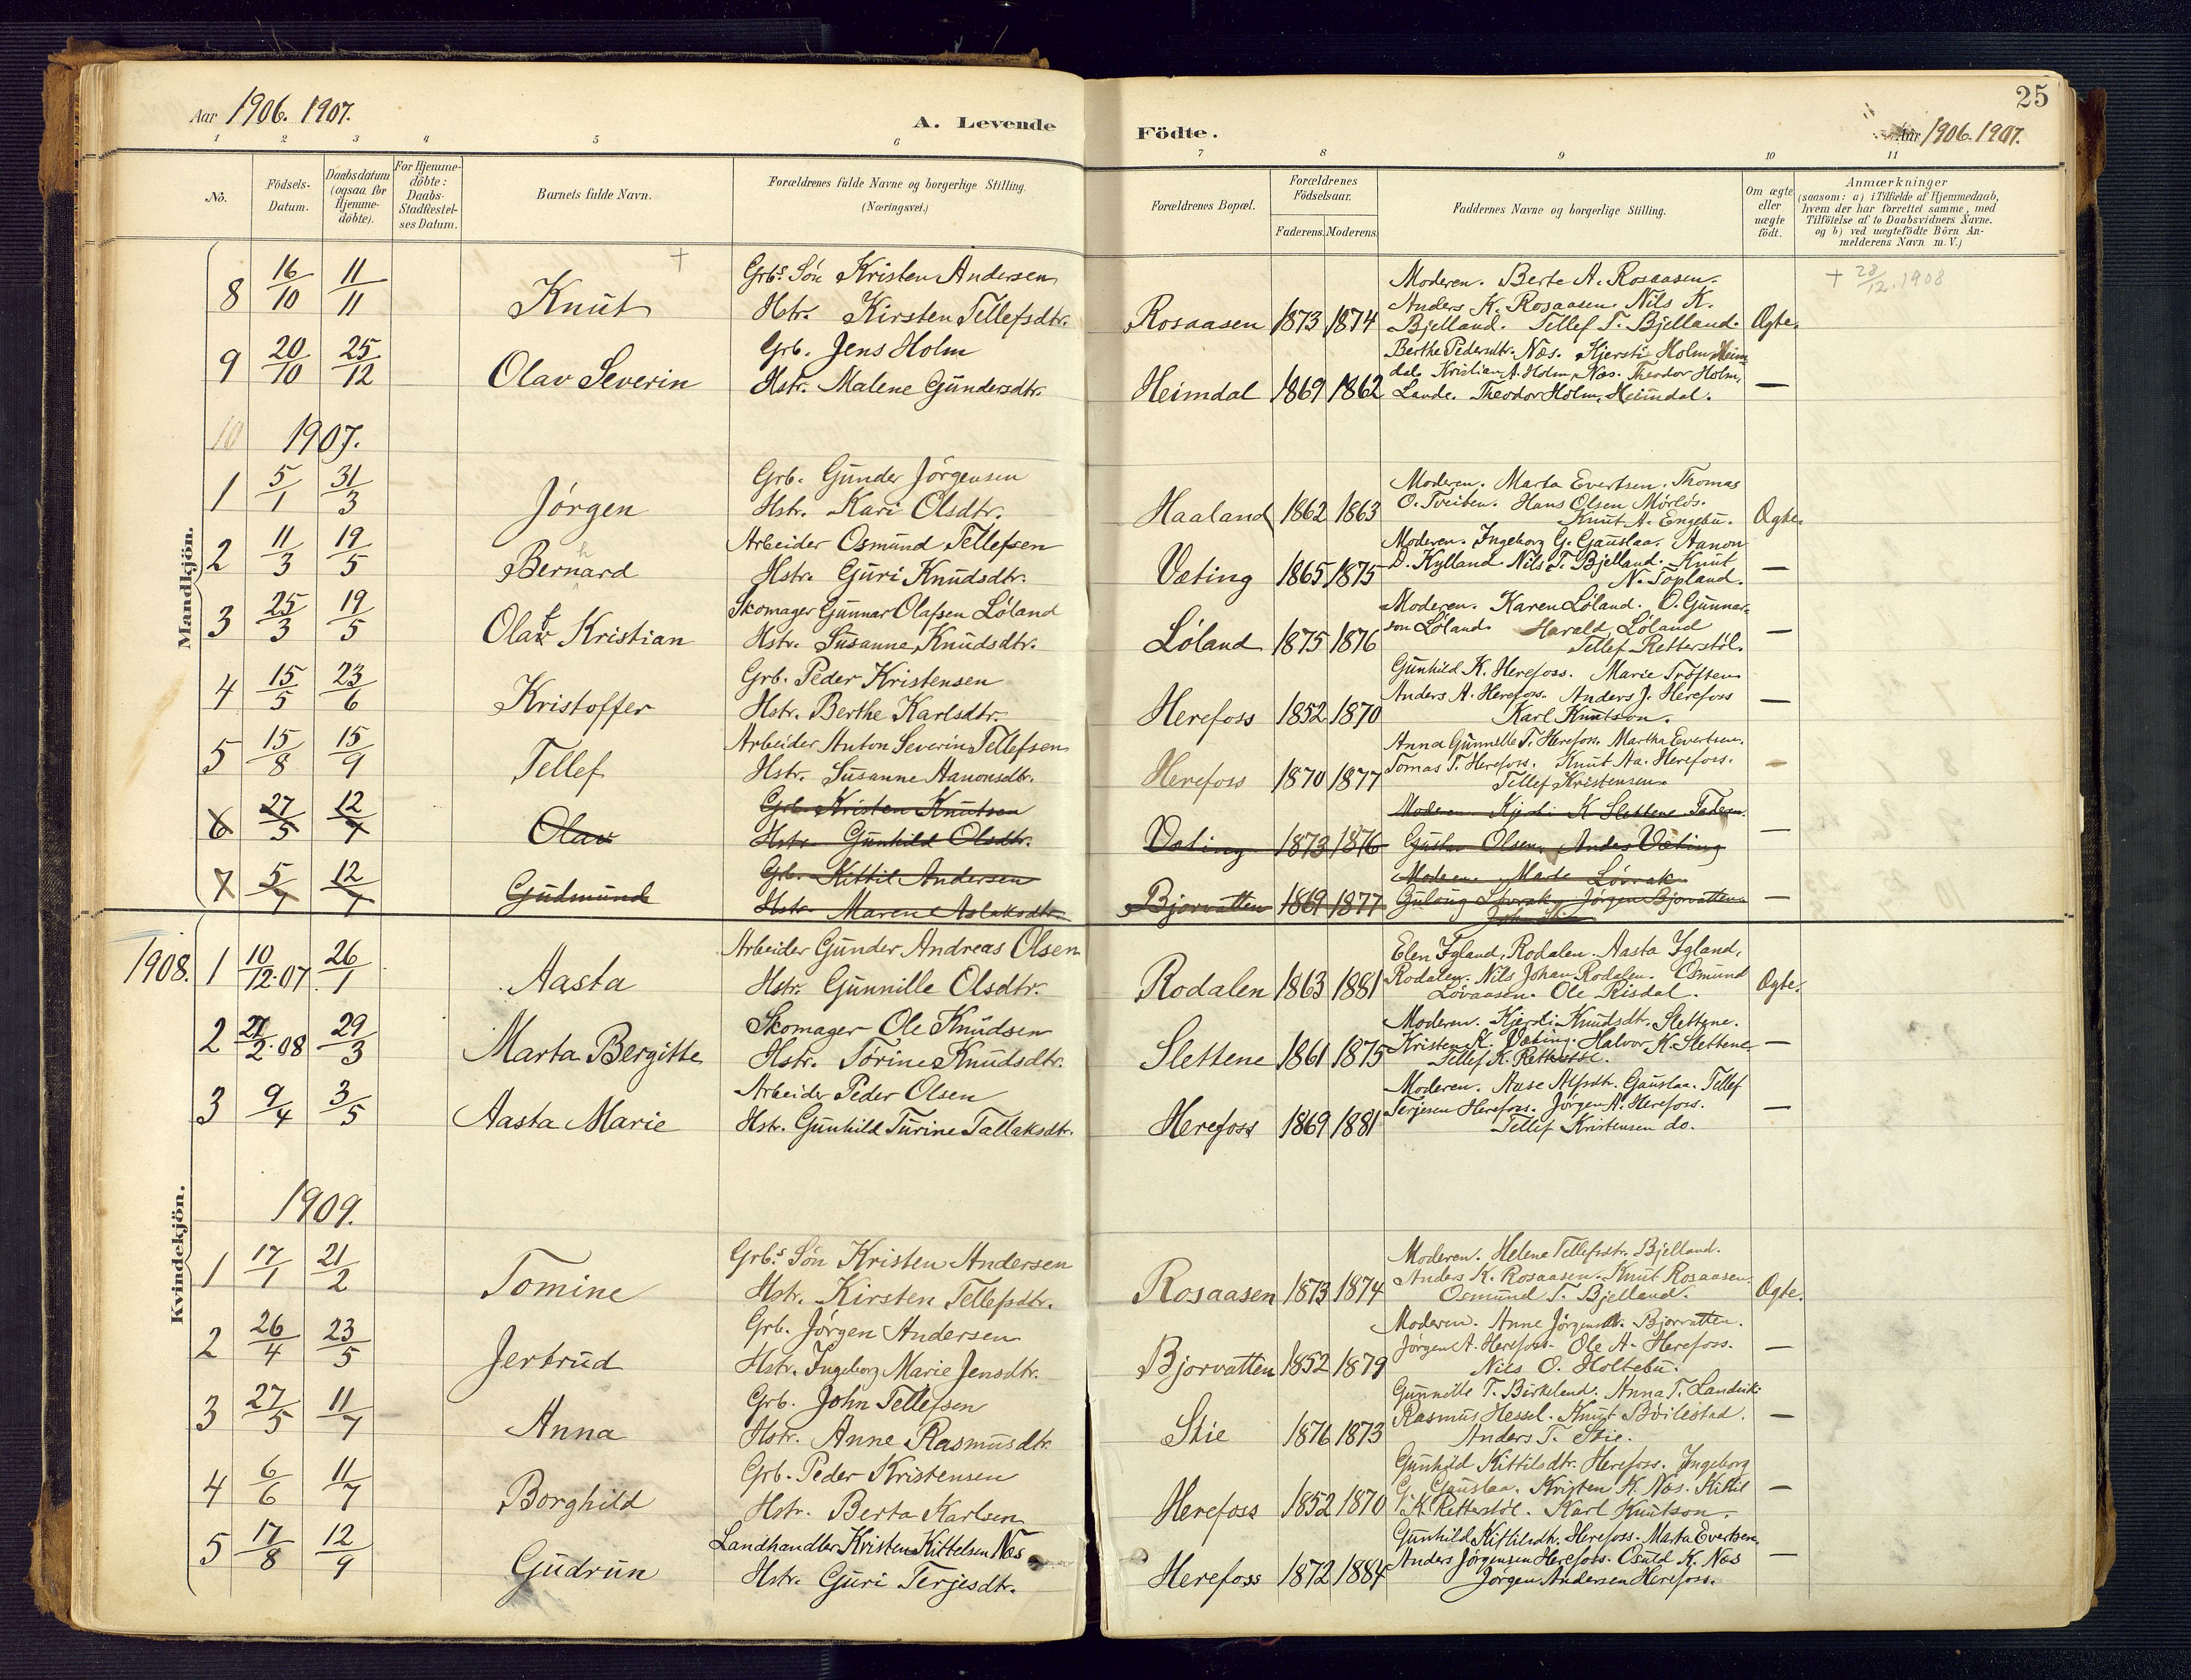 Aar 1906. 1907.
A. Levende
Födte.
25
Aar 1906. 1907.
1 2 3 4 5 6 7 8 9 10 11
No.
Födsels-
Datum.
Daabsdatum
(ogsaa for
Hjemme-
döbte).
For Hjemme-
döbte:
Daabs-
Stadfæstel-
ses Datum.
Barnets fulde Navn.
Forældrenes fulde Navne og borgerlige Stilling.
(Næringsvei.)
Forældrenes Bopæl.
Forældrenes
Födselsaar.
Faderens. Moderens.
Faddernes Navne og borgerlige Stilling.
Om ægte
eller
uægte
födt.
Anmærkninger
(saasom: a) i Tilfælde af Hjemmedaab,
hvem der har forrettet samme, med
Tilföielse af to Daabsvidners Navne.
og b) ved uægtefödte Börn An-
melderens Navn m. V.)
Mandkjön.
8 16/10 11/11 Knut +
Grbs. Sön Kristen Andersen
Hstr. Kirsten Tellefsdtr.
Rosaasen 1873 1874
Moderen. Berte A. Rosaasen.
Anders K. Rosaasen. Nils K.
Bjelland. Tellef T. Bjelland.
Ægte.
+ 28/12. 1908
9 20/10 25/12 Olav Severin
Grb. Jens Holm
Hstr. Malene Gundersdtr.
Heimdal 1869 1862
Berthe Pedersdtr. Næs. Kjersti Holm, Heim-
dal. Kristian A. Holm, Næs. Theodor Holm,
Lande. Theodor Holm, Heimdal.
—
10 1907.
1 5/1 31/3 Jörgen
Grb. Gunder Jörgensen
Hstr. Kari Olsdtr.
Haaland 1862 1863
Moderen. Marta Evertsen. Thomas
O. Tveiten. Hans Olsen Mörlös.
Knut A. Engebu.
Ægte.
2 11/3 19/5 Bernhard
Arbeider Osmund Tellefsen
Hstr. Guri Knudsdtr.
Væting 1865 1875
Moderen. Ingeborg G. Gauslaa. Aanon
D. Kylland. Nils T. Bjelland. Knut
N. Topland.
—
3 25/3 19/5 Olaf Kristian
Skomager Gunnar Olafsen Löland
Hstr. Susanne Knudsdtr.
Löland 1875 1876
Moderen. Karen Löland. O. Gunnar-
son Löland. Harald Löland
Tellef Retterstöl.
—
4 15/5 23/6 Kristoffer
Grb. Peder Kristensen
Hstr. Berthe Karlsdtr.
Herefoss 1852 1870
Gunhild K. Herefoss. Marie Tröften
Anders A. Herefoss. Anders J. Herefoss
Karl Knutson.
—
5 15/8 15/9 Tellef
Arbeider Anton Severin Tellefsen
Hstr. Susanne Aanonsdtr.
Herefoss 1870 1877
Anna Gunnille T. Herefoss. Martha Evertsen.
Tomas T. Herefoss. Knut Aa. Herefoss.
Tellef Kristensen.
—
6 27/5 12/7 Olav
Grb. Kristen Knutson
Hstr. Gunhild Olsdtr.
Væting 1873 1876
Moderen. Kjersti K Slettene Faderen.
Gustav Olsen. Anders Væting
—
7 5/7 12/7 Gudmund
Grb. Kittil Andersen
Hstr. Maren Aslaksdtr.
Bjorvatten 1869 1877
Moderen. Marte Lövrak
Gulaug Lövrak, Jörgen Bjorvatten
—
Kvindekjön.
1908. 1 10/12.07 26/1 Aasta
Arbeider Gunder Andreas Olsen
Hstr. Gunnille Olsdtr.
Rodalen 1863 1881
Elen Igland, Rodalen. Aasta Igland,
Rodalen. Nils Johan Rodalen. Osmund
Lövaasen. Ole Risdal.
Ægte.
2 27/2.08 29/3 Marta Bergitte
Skomager Ole Knudsen
Hstr. Torine Knudsdtr.
Slettene 1861 1875
Moderen. Kjersti Knudsdtr. Slettene.
Kristen K. Væting. Halvor K. Slettene
Tellef K. Retterstöl.
—
3 9/4 3/5 Aasta Marie
Arbeider Peder Olsen
Hstr. Gunhild Turine Tallaksdtr.
Herefoss 1869 1881
Moderen. Aase Alfsdtr. Gauslaa. Tellef
Terjesen Herefoss. Jörgen A. Herefoss.
Tellef Kristensen do.
—
1909.
1 17/1 21/2 Tomine
Grbs. Sön Kristen Andersen
Hstr. Kirsten Tellefsdtr.
Rosaasen 1873 1874
Moderen. Helene Tellefsdtr. Bjelland.
Anders K. Rosaasen. Knut Rosaasen.
Osmund T. Bjelland.
Ægte.
2 26/4 23/5 Jertrud
Grb. Jörgen Andersen
Hstr. Ingeborg Marie Jensdtr.
Bjorvatten 1852 1879
Moderen. Anne Jörgensdtr. Bjorvatten.
Jörgen A. Herefoss. Ole A. Herefoss.
Nils O. Holtebu.
—
3 27/5 11/7 Anna
Grb. John Tellefsen
Hstr. Anne Rasmusdtr.
Stie 1876 1873
Gunnille T. Birkeland. Anna T. Landvik.
Rasmus Hessel. Knut Böilestad.
Anders T. Stie.
—
4 6/6 11/7 Borghild
Grb. Peder Kristensen
Hstr. Berta Karlsen
Herefoss 1852 1870
Gunhild Kittilsdtr. Herefoss. Ingeborg
G. Gauslaa. Kristen K. Næs. Kittil
K. Retterstöl. Karl Knutson.
—
5 17/8 12/9 Gudrun
Landhandler Kristen Kittelsen Næs
Hstr. Guri Terjesdtr.
Herefoss 1872 1884
Gunhild Kittilsdtr. Herefoss. Marta Evertsen,
Anders Jörgensen Herefoss. Osuld K. Næs
Jörgen Andersen Herefoss.
—